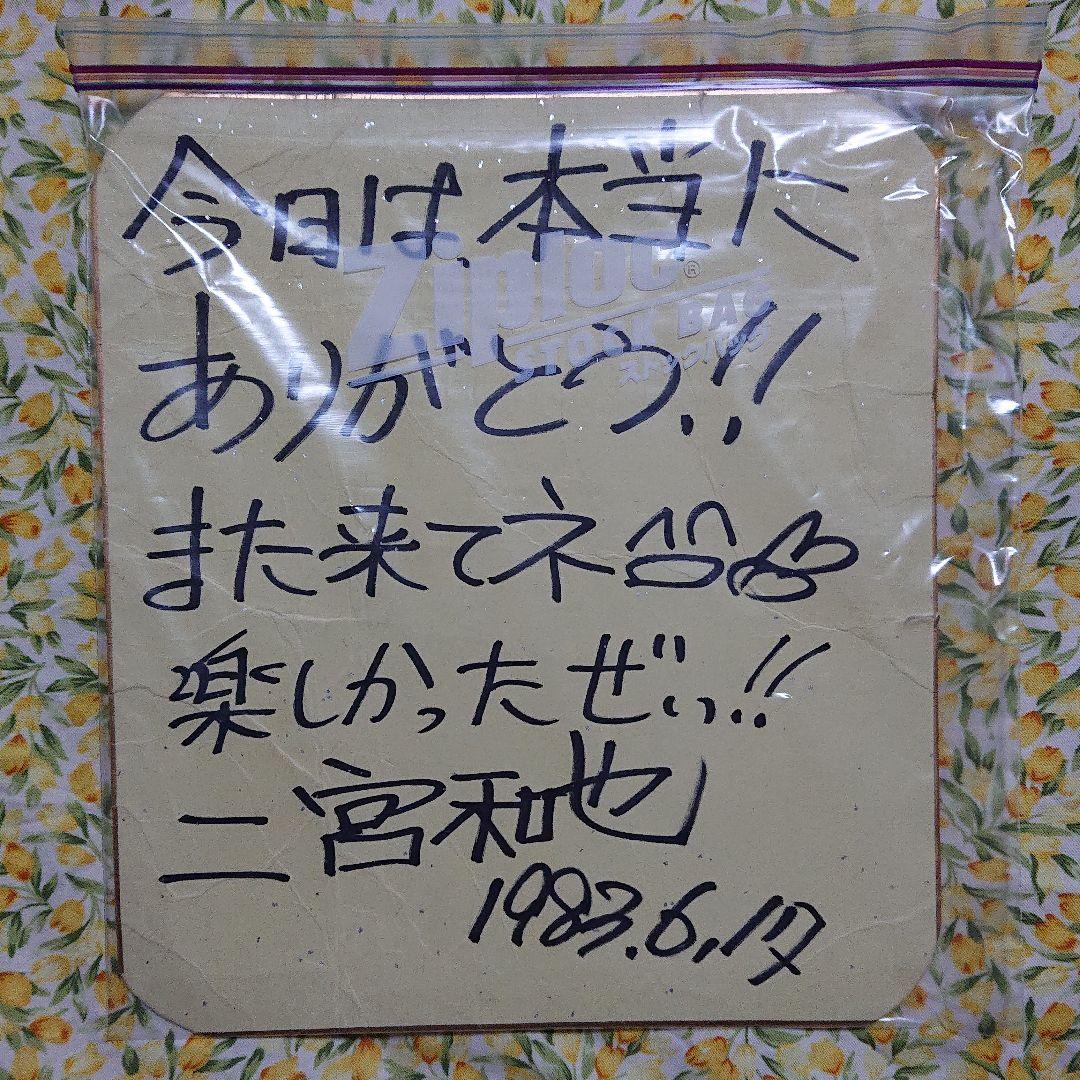 今日は、本当に
ありがとう!!
また来てネ
楽しかったぜぃっ!!
二宮和也
1983.6.17
Ziploc®
STOCK BAG
ストックバッグ